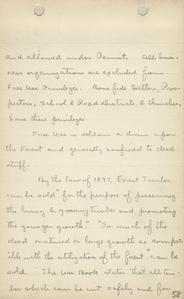 and allowed under Permit. All busi-
ness organizations are excluded from
Free Use Privileges. Bona fide Settlers, Pros-
pectors, School & Road Districts, & Churches,
have these privileges.
Free Use is seldom a drain upon
the Forest and generally confined to dead
stuff.
By the law of 1897, Forest Timber
can be sold "for the purpose of preserving
the living & growing timber and promoting
the younger growth." "So much of the
dead matured or large growth as compat-
ible with the utilization of the forest" can be
sold. The Use Book states that all tim-
ber which can be cut safely and for
58